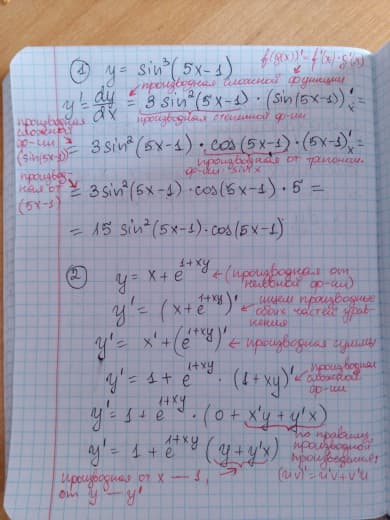 f(g(x))' = f'(x) · g'(x)
① y = sin³(5x-1)
производная сложной функции
y' = dy/dx = 3 sin²(5x-1) · (sin(5x-1))'ₓ =
производная степенной ф-ии
производная сложной ф-ии (sin(5x-1))
= 3 sin²(5x-1) · cos(5x-1) · (5x-1)'ₓ =
производная от тригоном. ф-ии sinx
производ-
ная от
(5x-1)
= 3 sin²(5x-1) · cos(5x-1) · 5 =
= 15 sin²(5x-1) · cos(5x-1)
② y = x + e^(1+xy) (производная от
неявной ф-ии)
y' = (x + e^(1+xy))' ищем производные
обоих частей урав-
нения
y' = x' + (e^(1+xy))' производная суммы
y' = 1 + e^(1+xy) · (1+xy)' производная
сложной
ф-ии
y' = 1 + e^(1+xy) · (0 + x'y + y'x)
y' = 1 + e^(1+xy) (y + y'x)
по правилу
производной
произведения:
(uv)' = u'v + v'u
производная от x — 1,
от y — y'